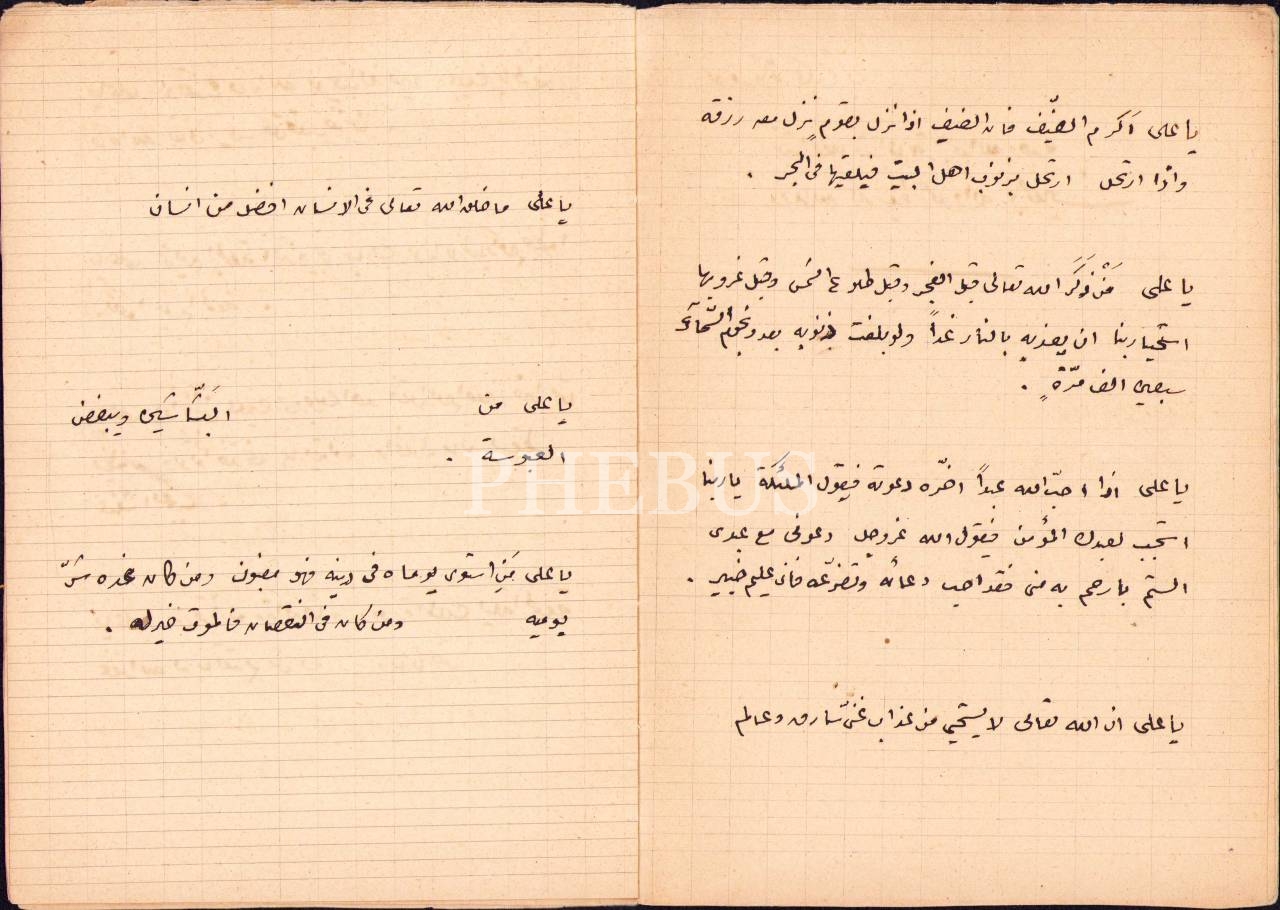 يا على اَكرم الضّيف فان الضيف اذا نزل بقومٍ نزل معه رزقه
واذا ارتحل ارتحل بذنوب اهل البيت فيلقيها فى البحر .
يا على مَنْ ذَكَرَ الله تعالى قبل الفجر وقبل طلوع الشمس وقبل غروبها
استحيا ربنا ان يعذبه بالنار غداً ولو بلغت ذنوبه بعدد نجوم السَّمآء
سبعين الف مرّةٍ .
يا على اذا احبّ الله عبداً اخّره دعوته فيقول الملئكة يا ربنا
استجب لعبدك المؤمن فيقول الله عزوجل دعونى مع عبدى
الستم بارحم به منى فقد احب دعائه وتضرّعه فانى عليم خبير .
يا على ان الله تعالى لا يستحيي من عذاب غنىّ سارق وعالم
يا على ما خلق الله تعالى فى الانسان افضل من انسان
يا على من البشاشين ويبغض
العبوسة .
يا على مَنِ استوى يوماه فى دينه فهو مغبون ومن كان غده شرّ
يوميه ومن كان فى النقصان فالموت خير له .
PHEBUS